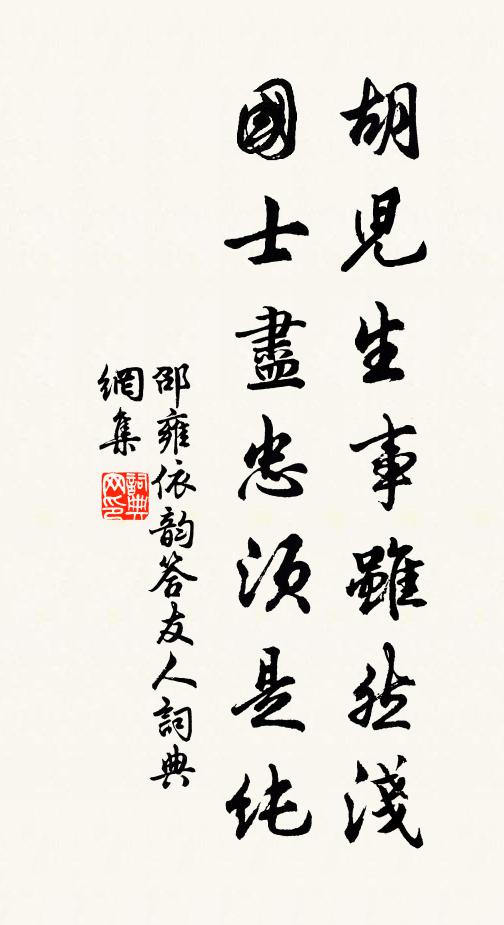 胡兒生事雖然淺
國士盡忠須是純
邵雍依韵答友人詞典
網集
詞典
网印